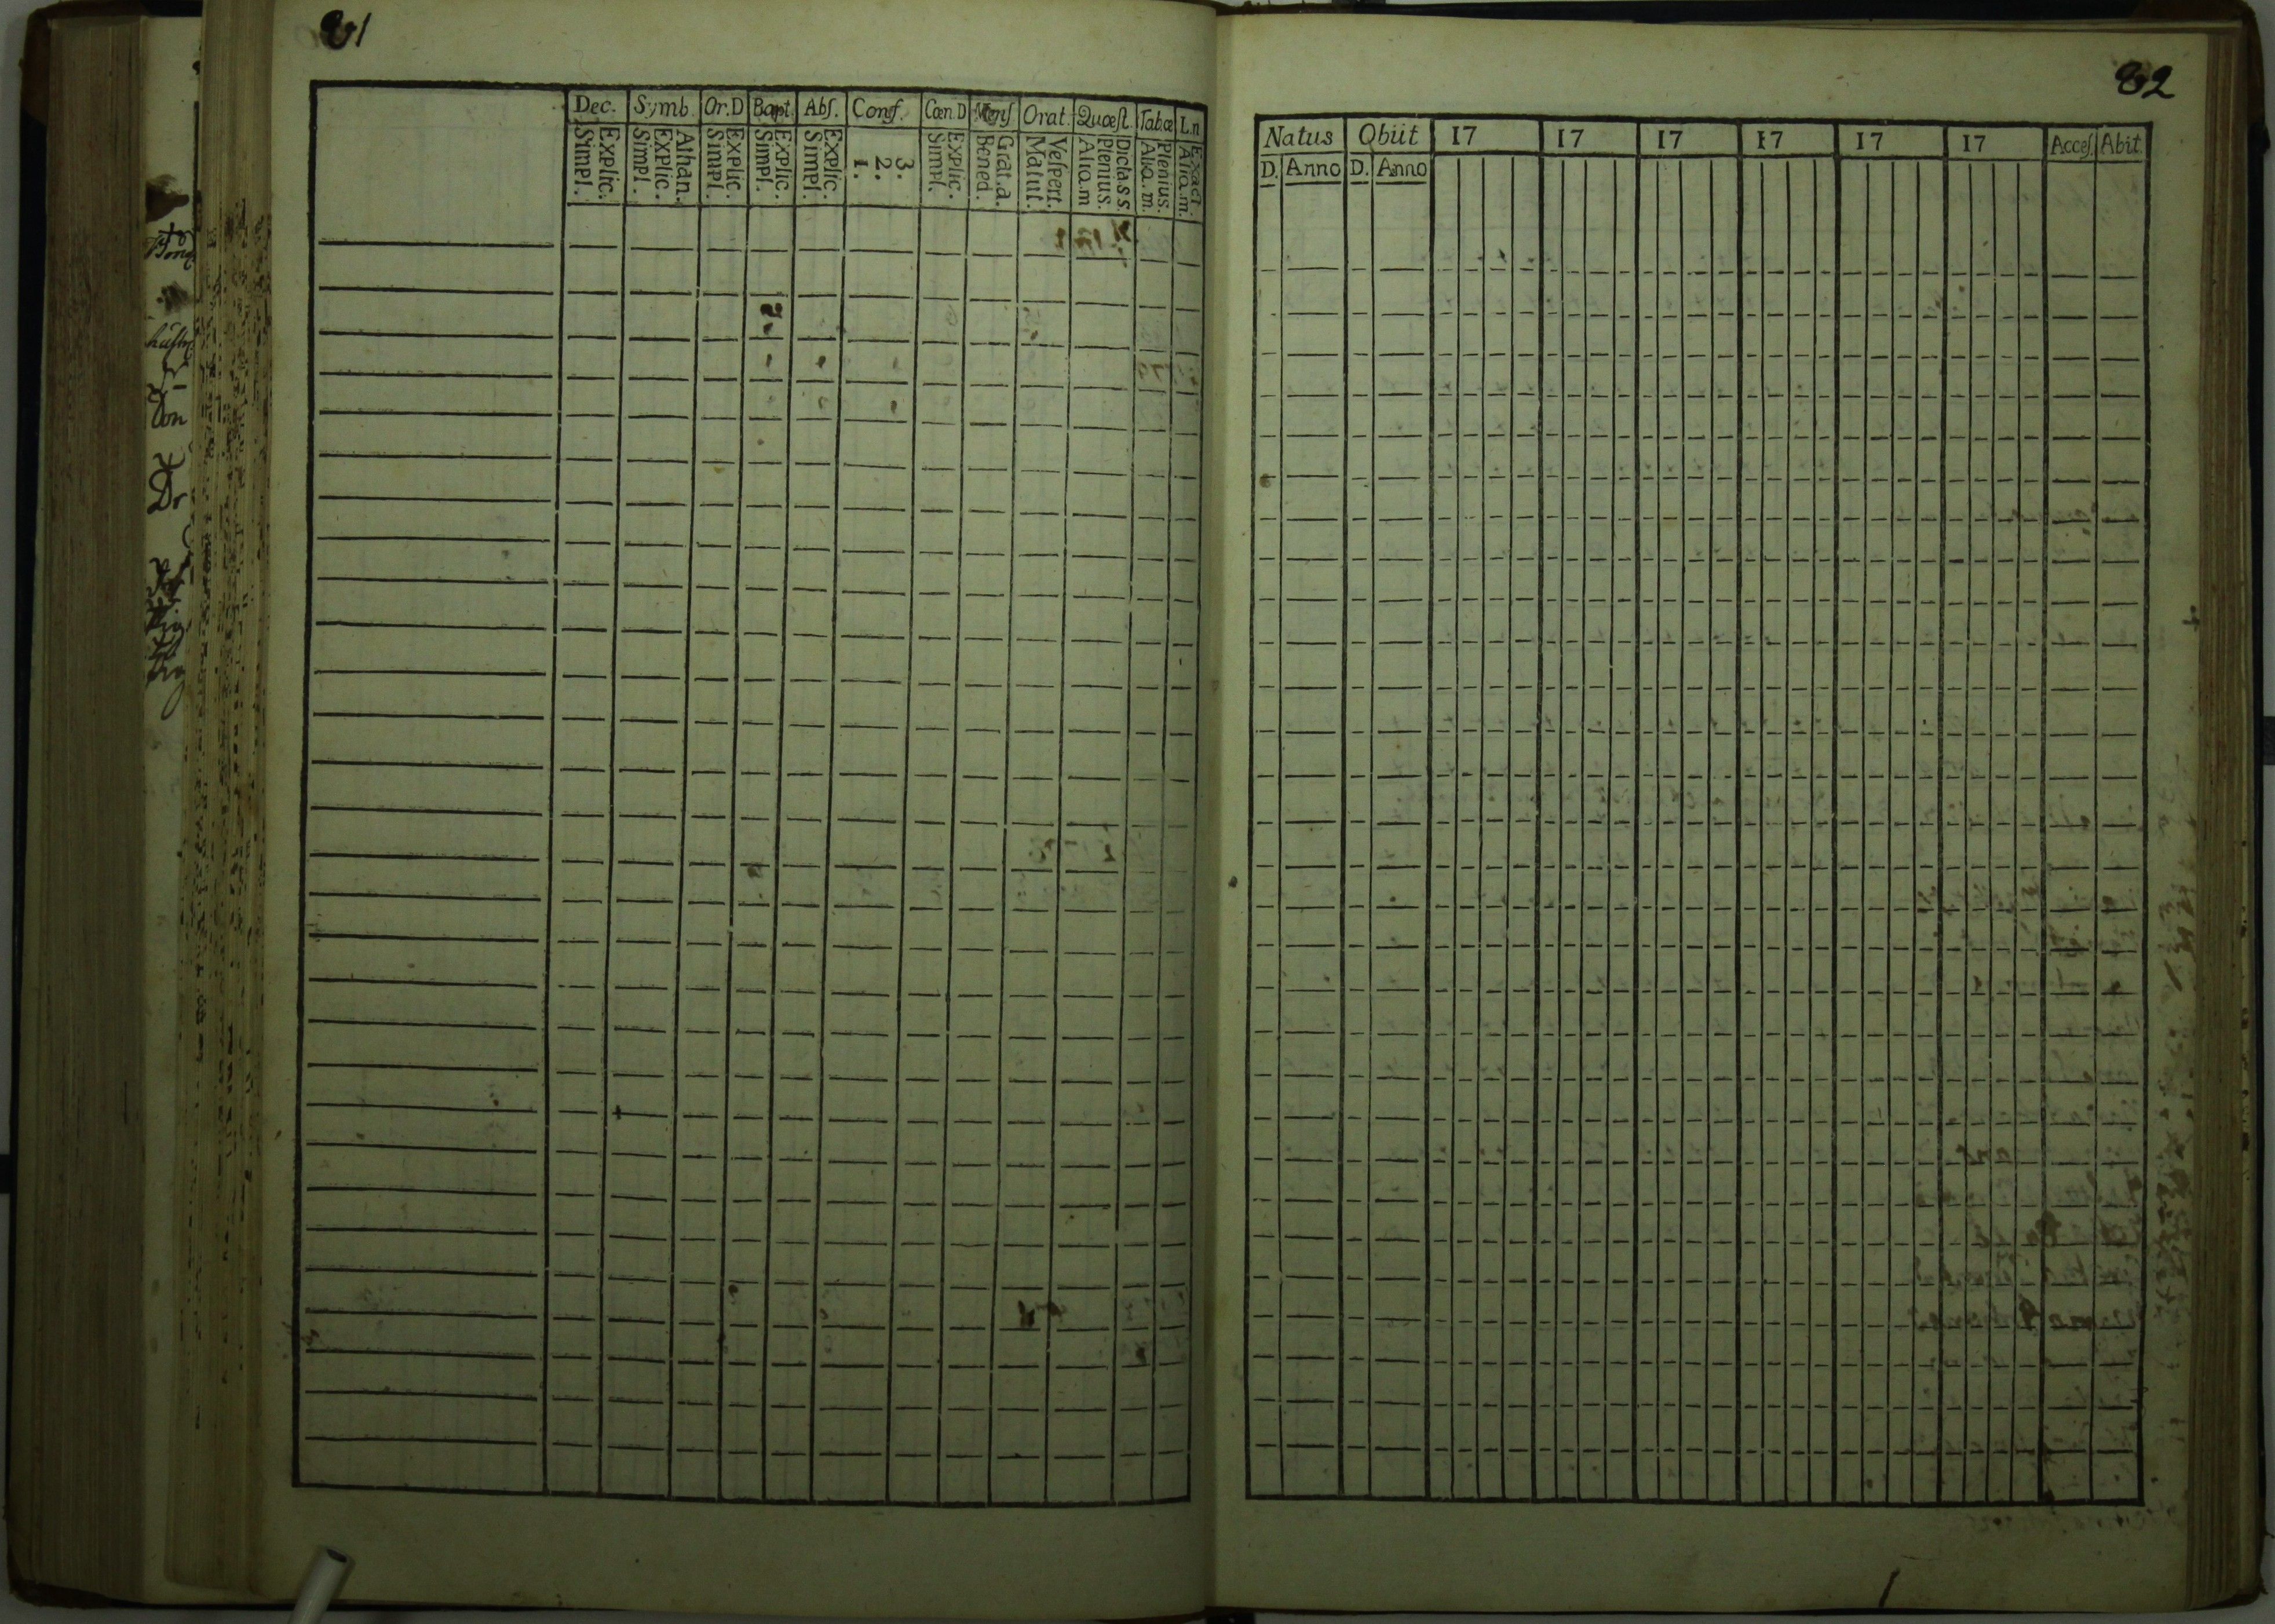 81
Dec. Symb. Or.D Bapt. Abſ. Conf. Cœn.D Menſ Orat. Quæſt. Tab.œ L.n
Explic. Simpl.
Athan. Explic. Simpl.
Explic. Simpl.
Explic. Simpl.
Explic. Simpl.
3. 2. 1.
Explic. Simpl.
Grat.a. Bened.
Veſpert. Matut.
Dicta s s. Plenius. Aliq.m
Plenius. Aliq.m.
Exact. Aliq.m.
82
Natus Obiit 17 17 17 17 17 17 Acceſ. Abit
D. Anno D. Anno
Don
Dr